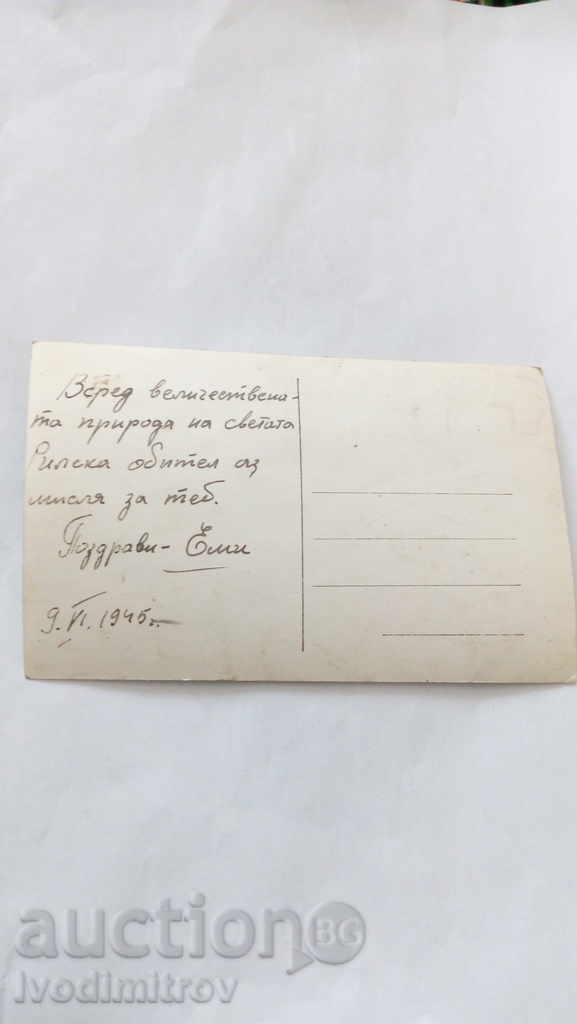 Всред величествена-
та природа на светата
Рилска обител аз
мисля за теб.
Поздрави - Еми
9.VI.1945г.
auction BG
Ivodimitrov